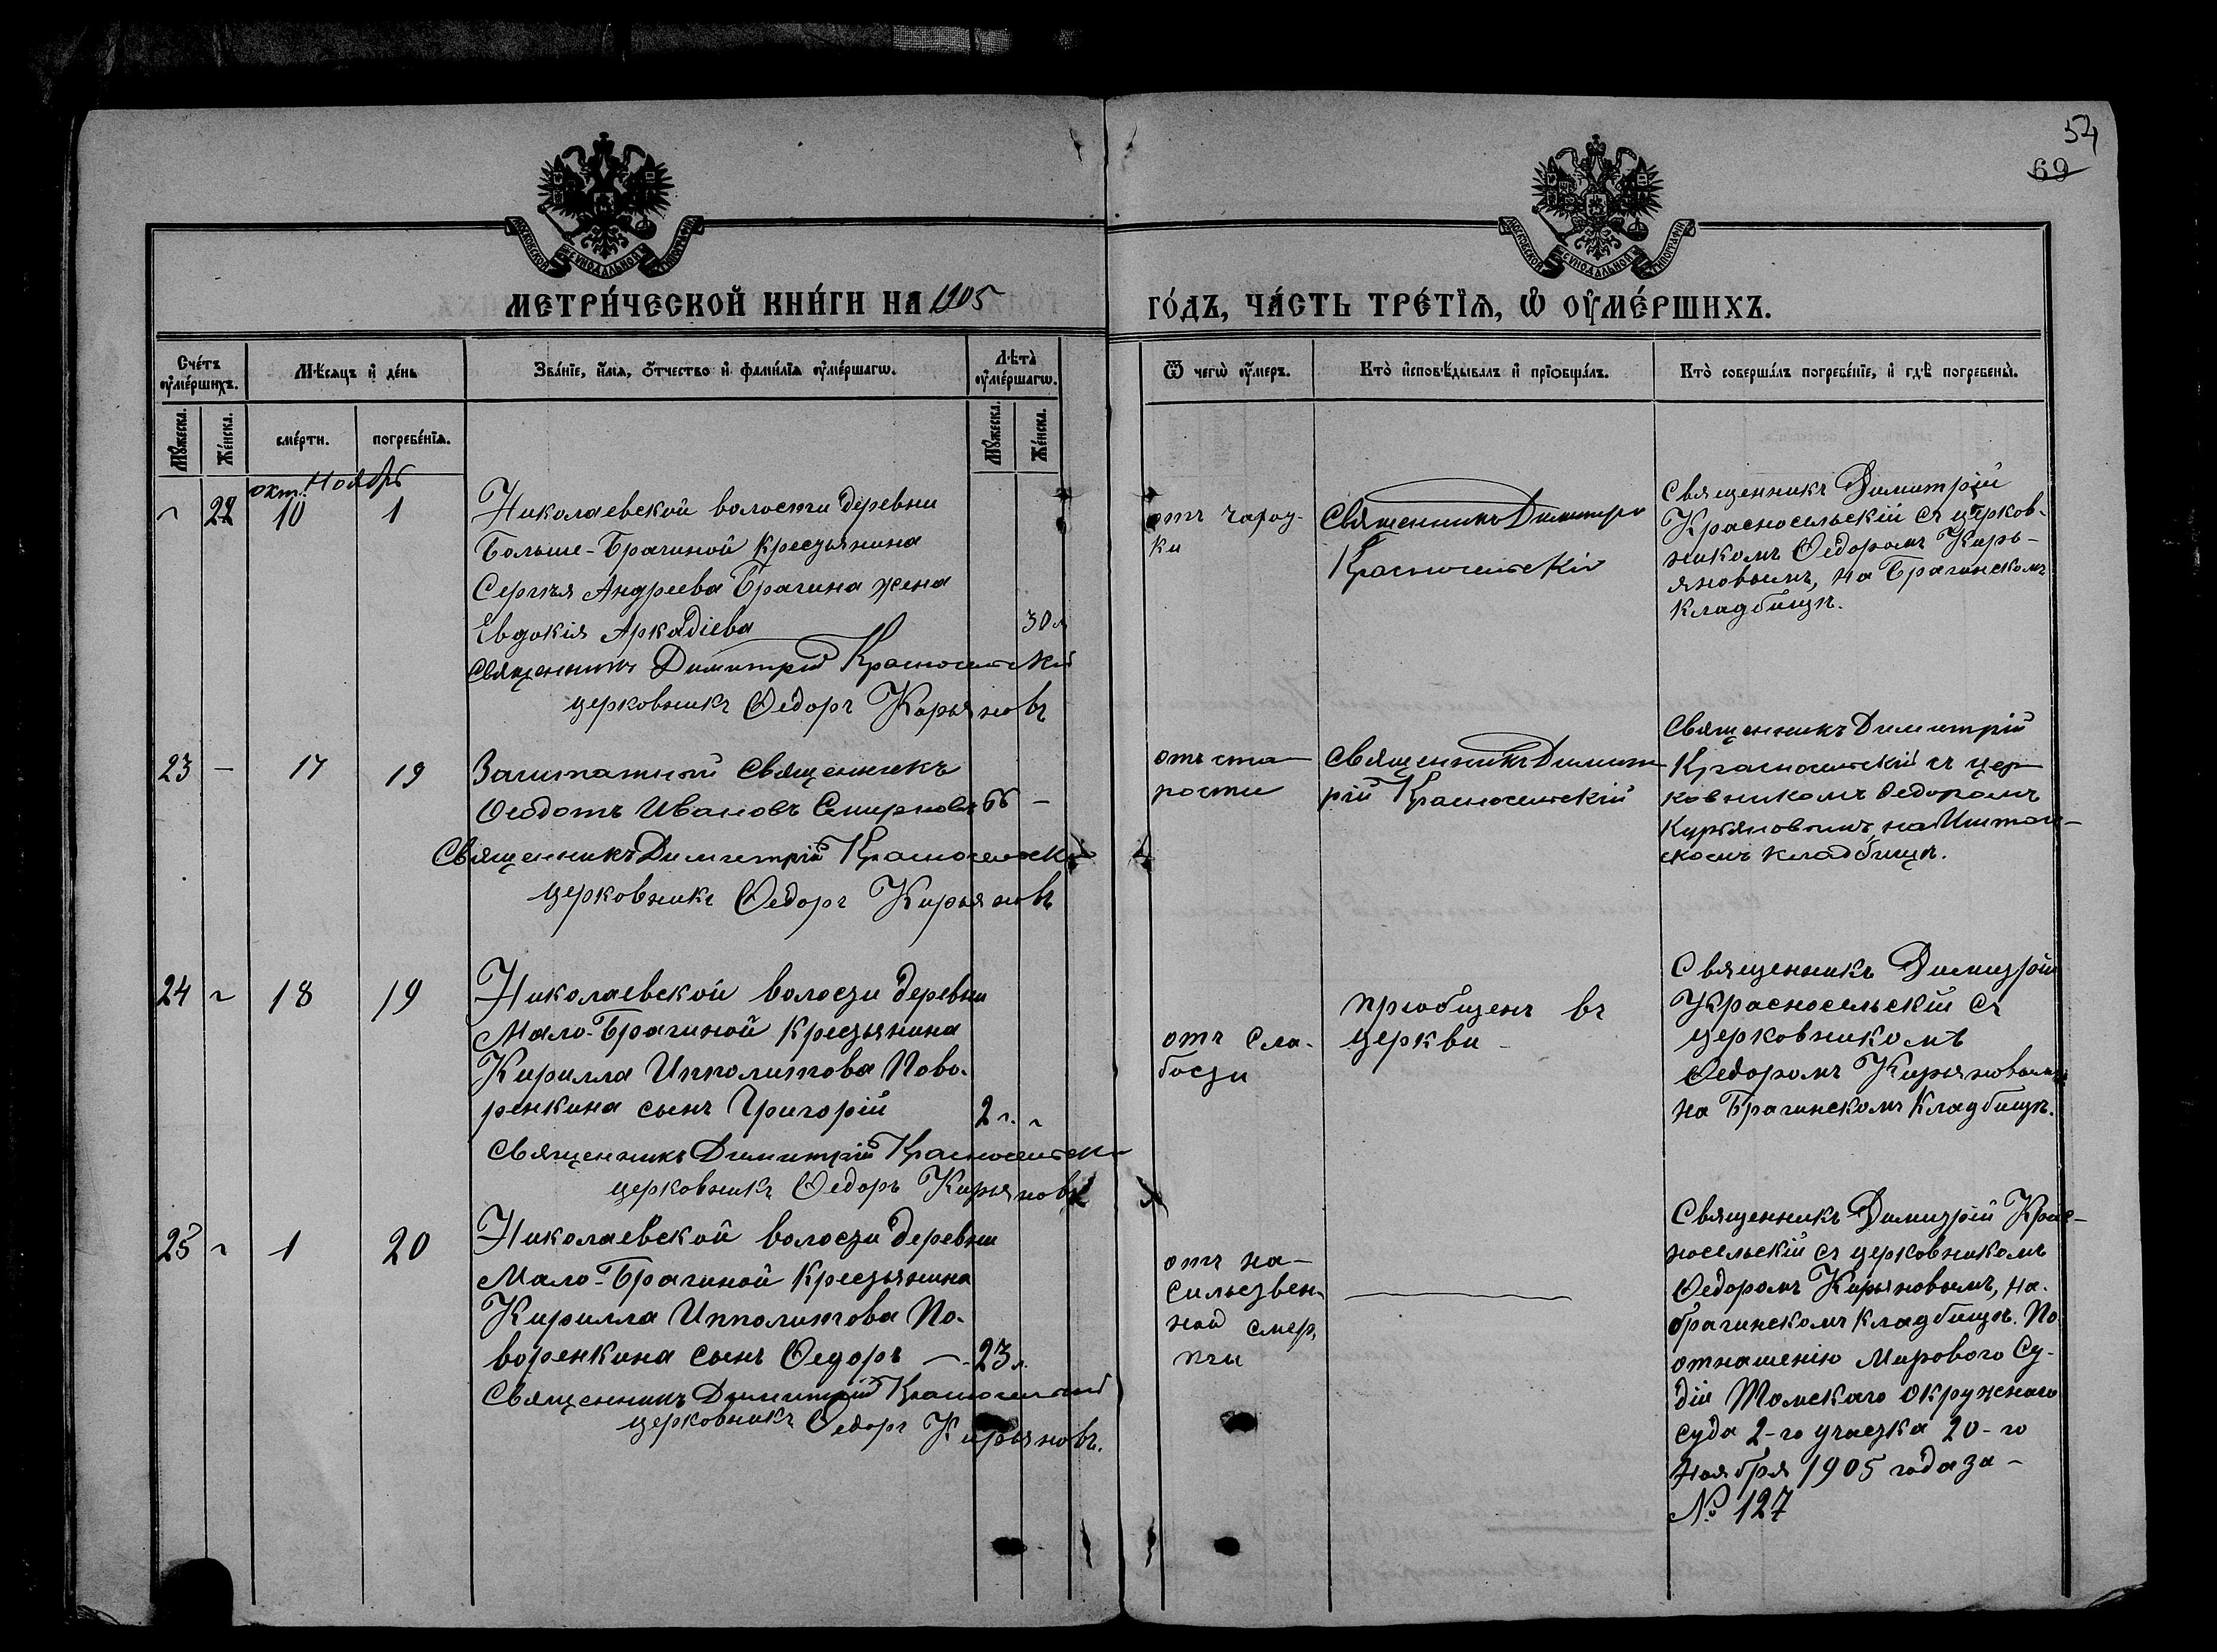 54
69
МОСКОВСКОЙ СѴНОДАЛЬНОЙ ТИПОГРАФІИ
МОСКОВСКОЙ СѴНОДАЛЬНОЙ ТИПОГРАФІИ
МЕТРИ́ЧЕСКОЙ КНИ́ГИ НА 1905
ГО́ДЪ, ЧА́СТЬ ТРЕ́ТІѦ, Ѽ ОУ҆МЕ́РШИХЪ.
Сче́тъ
оу҆ме́ршихъ.
Мѣ́сѧцъ и҆ де́нь
Зва́нїе, и҆́мѧ, ѻ҆́тчество и҆ фами́лїѧ оу҆ме́ршагѡ.
Лѣ̀та
оу҆ме́ршагѡ.
Ѿ чегѡ̀ оу҆́меръ.
Кто̀ и҆сповѣ́дывалъ и҆ прїѡбща́лъ.
Кто̀ соверша́лъ погребе́нїе, и҆ гдѣ̀ погребены̀.
Мꙋ́жеска.
Же́нска.
сме́рти.
погребе́нїѧ.
Мꙋ́жеска.
Же́нска.
окт. Ноябрь
22 10 1
Николаевской волости деревни
Больше-Брагиной крестьянина
Сергѣя Андреева Брагина жена
Евдокія Аркадіева 30 л
Священникъ Димитрій Красносельскій
церковникъ Ѳедоръ Кирьяновъ
отъ чахот-
ки
Священникъ Димитрій
Красносельскій
Священникъ Димитрій
Красносельскій съ церков-
никомъ Ѳедоромъ Кирь-
яновымъ, на Брагинскомъ
кладбищѣ.
23 — 17 19
Заштатный Священникъ
Ѳеодотъ Ивановъ Смирновъ 66 —
Священникъ Димитрій Красносельскій
церковникъ Ѳедоръ Кирьяновъ
отъ ста-
рости
Священникъ Димит-
рій Красносельскій
Священникъ Димитрій
Красносельскій съ цер-
ковникомъ Ѳедоромъ
Кирьяновымъ, на Иштан-
скомъ кладбищѣ.
24 18 19
Николаевской волости деревни
Мало-Брагиной крестьянина
Кирилла Ипполитова Пово-
ренкина сынъ Григорій 2 г.
Священникъ Димитрій Красносельскій
церковникъ Ѳедоръ Кирьяновъ
отъ сла-
бости
пріобщенъ въ
церкви
Священникъ Димитрій
Красносельскій съ
церковникомъ
Ѳедоромъ Кирьяновымъ
на Брагинскомъ кладбищѣ.
25 1 20
Николаевской волости деревни
Мало-Брагиной крестьянина
Кирилла Ипполитова По-
воренкина сынъ Ѳедоръ — 23 л.
Священникъ Димитрій Красносельскій
церковникъ Ѳедоръ Кирьяновъ.
отъ на-
сильствен-
ной смер-
ти
Священникъ Димитрій Крас-
носельскій съ церковникомъ
Ѳедоромъ Кирьяновымъ, на
Брагинскомъ кладбищѣ. По
отнашенію Мирового Су-
діи Томскаго Окружного
суда 2-го участка 20-го
Ноября 1905 года за
№ 127